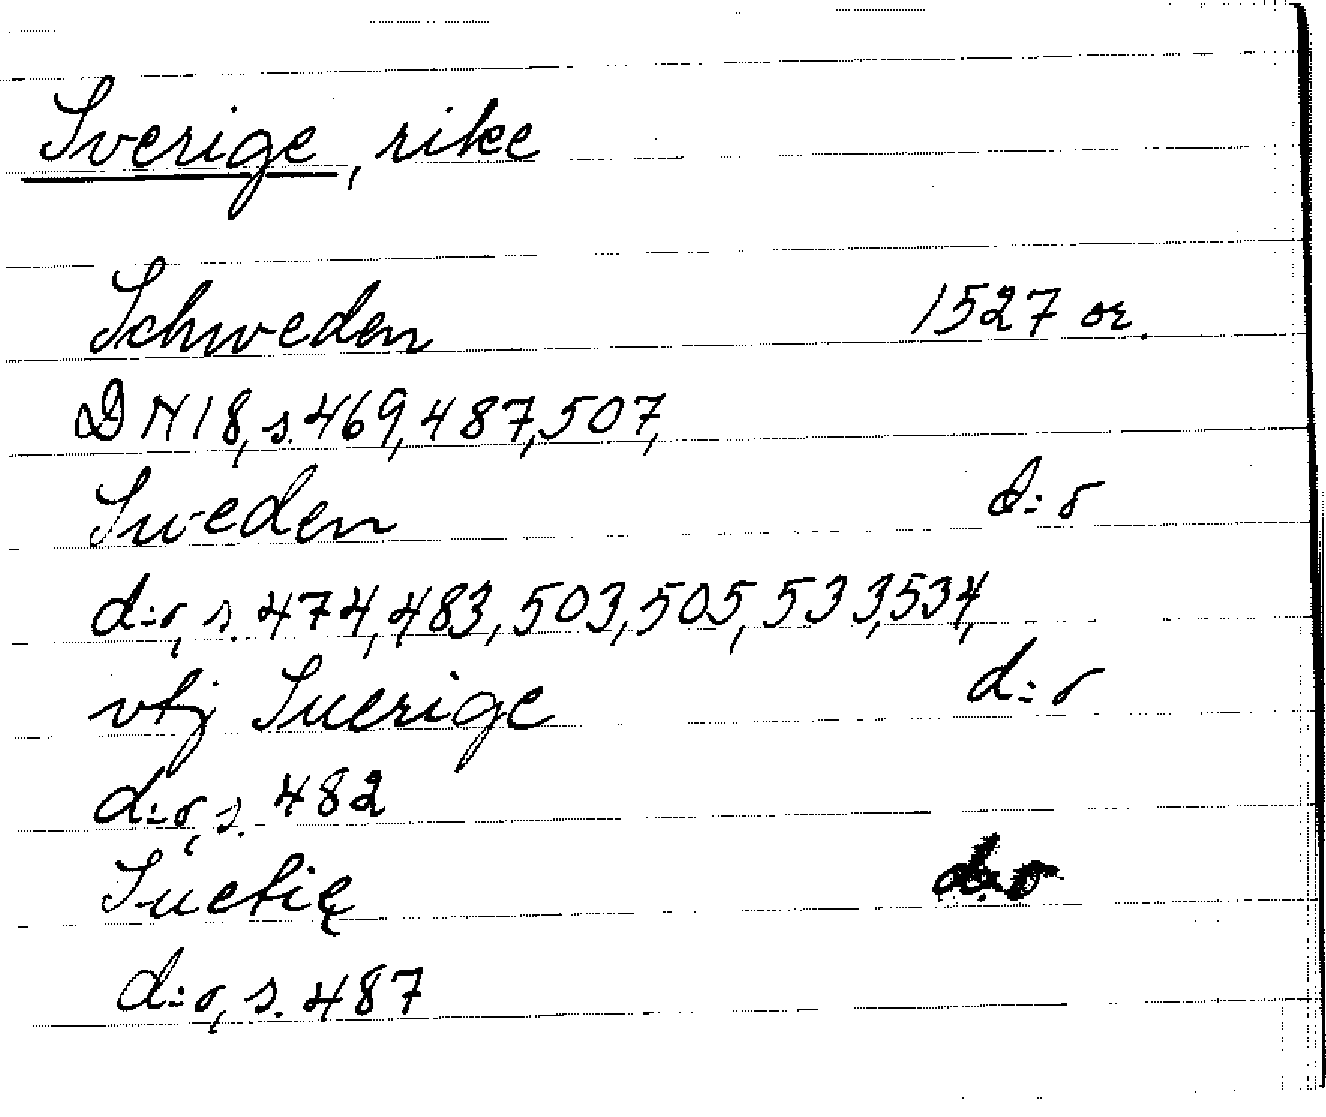 Sverige, rike
Schweden 1527 or.
DN 18, s. 469, 487, 507,
Sweden d:o
d:o, s. 474, 483, 503, 505, 533, 534,
vtj Suerige d:o
d:o, s. 482
Suetię d:o
d:o, s. 487